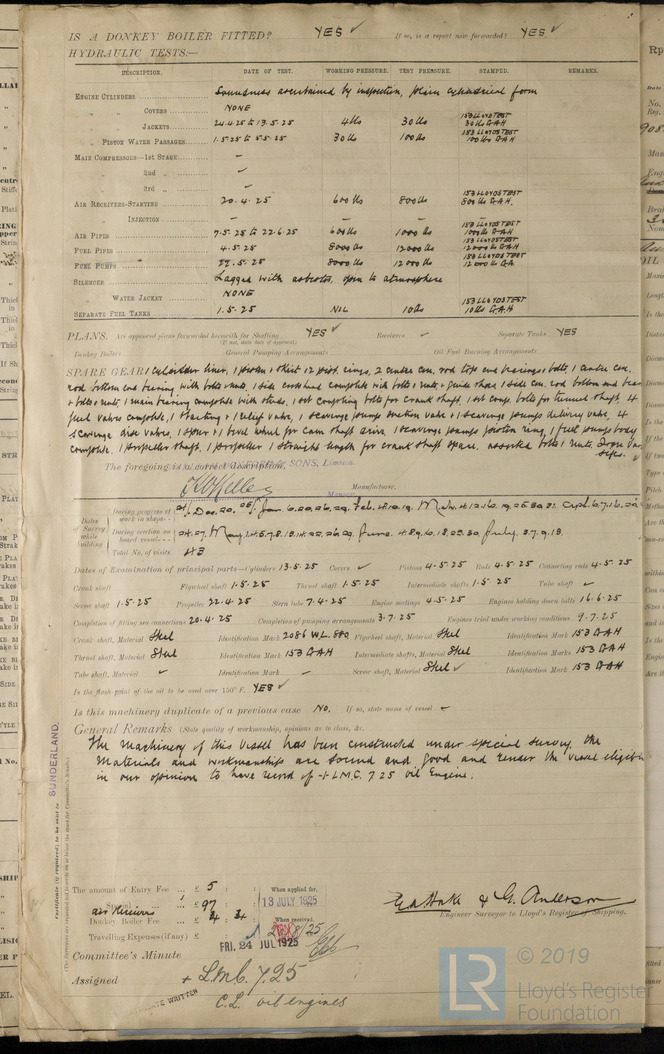 IS A DONKEY BOILER FITTED? YES ✓ If so, is a report now forwarded? YES ✓
HYDRAULIC TESTS:—
DESCRIPTION. DATE OF TEST. WORKING PRESSURE. TEST PRESSURE. STAMPED. REMARKS.
ENGINE CYLINDERS Soundness ascertained by inspection, plain cylindrical form
" COVERS NONE
" JACKETS 24.4.25 to 13.5.25 4 lbs 30 lbs 153 LLOYDS TEST 30 lbs G.A.H
" PISTON WATER PASSAGES 1.5.25 to 5.5.25 30 lbs 100 lbs 153 LLOYDS TEST 100 lbs G.A.H
MAIN COMPRESSORS—1st STAGE –
" 2nd " –
" 3rd " –
AIR RECEIVERS—STARTING 20.4.25 600 lbs 800 lbs 153 LLOYDS TEST 800 lbs G.A.H.
" INJECTION – – – –
AIR PIPES 7.5.25 to 22.6.25 600 lbs 1000 lbs 153 LLOYDS TEST 1000 lbs G.A.H
FUEL PIPES 4.5.25 8000 lbs 12000 lbs 153 LLOYDS TEST 12000 lbs G.A.H
FUEL PUMPS .5.25 8000 lbs 12000 lbs 153 LLOYDS TEST 12000 lbs G.A.
SILENCER Lagged with asbestos, open to atmosphere
" WATER JACKET NONE
SEPARATE FUEL TANKS 1.5.25 NIL 10 lbs 153 LLOYDS TEST 10 lbs G.A.H
PLANS. Are approved plans forwarded herewith for Shafting YES ✓ Receivers ✓ Separate Tanks YES
(If not, state date of approval)
Donkey Boilers General Pumping Arrangements Oil Fuel Burning Arrangements
SPARE GEAR 1 cylinder liner, 1 piston & skirt 12 pist. rings, 2 centre con. rod top end bearings & bolts, 1 centre con.
rod bottom end bearing with bolts & nuts, 1 side crosshead complete with bolts & nuts & guide shoes, 1 side con. rod bottom end bear
& bolts & nuts, 1 main bearing complete with studs, 1 set coupling bolts for crank shaft, 1 set coup. bolts for tunnel shaft, 4
fuel valves complete, 1 starting & 1 relief valve, 1 scavenge pump suction valve & 1 scavenge pump delivery valve, 4
scavenge disc valves, 1 spur & 1 bevel wheel for cam shaft drive, 1 scavenge pump piston ring, 1 fuel pump body
complete, 1 propeller shaft, 1 propeller, 1 straight length for crank shaft spare, assorted bolts & nuts, Iron
The foregoing is a correct description, SONS, LIMITED
Manufacturer.
Manager
Dates of Survey while building
During progress of work in shops
During erection on board vessel
Total No. of visits 43
Dates of Examination of principal parts—Cylinders 13.5.25 Covers ✓ Pistons 4.5.25 Rods 4.5.25 Connecting rods 4.5.25
Crank shaft Flywheel shaft 1.5.25 Thrust shaft 1.5.25 Intermediate shafts 1.5.25 Tube shaft ✓
Screw shaft 1.5.25 Propeller 22.4.25 Stern tube 7.4.25 Engine seatings 4.5.25 Engines holding down bolts 16.6.25
Completion of fitting sea connections 20.4.25 Completion of pumping arrangements 3.7.25 Engines tried under working conditions 9.7.25
Crank shaft, Material Steel Identification Mark 2086 W.L. Flywheel shaft, Material Steel Identification Mark 153 GAH
Thrust shaft, Material Steel Identification Mark 153 GAH Intermediate shafts, Material Steel Identification Marks 153 GAH
Tube shaft, Material ✓ Identification Mark – Screw shaft, Material Steel ✓ Identification Mark 153 GAH
Is the flash point of the oil to be used over 150° F. YES ✓
Is this machinery duplicate of a previous case NO. If so, state name of vessel –
General Remarks (State quality of workmanship, opinions as to class, &c.
The machinery of this vessel has been constructed under special survey, the
materials and workmanship are sound and good and render the vessel eligible
in our opinion to have record of + L.M.C. 7.25 oil Engine.
SUNDERLAND.
The amount of Entry Fee ... £ 5 : : When applied for,
Special ... £ 97 : : 13 JULY 1925
air Receivers
Donkey Boiler Fee ... £ 4 : 4 : When received,
Travelling Expenses (if any) £ : :
G.A. Hake & G. Anderson
Engineer Surveyor to Lloyd's Register of Shipping.
Committee's Minute FRI. 24 JUL 1925
Assigned + L.M.C. 7.25
C.L. oil engines
WRITTEN
© 2019
LR
Lloyd's Register
Foundation